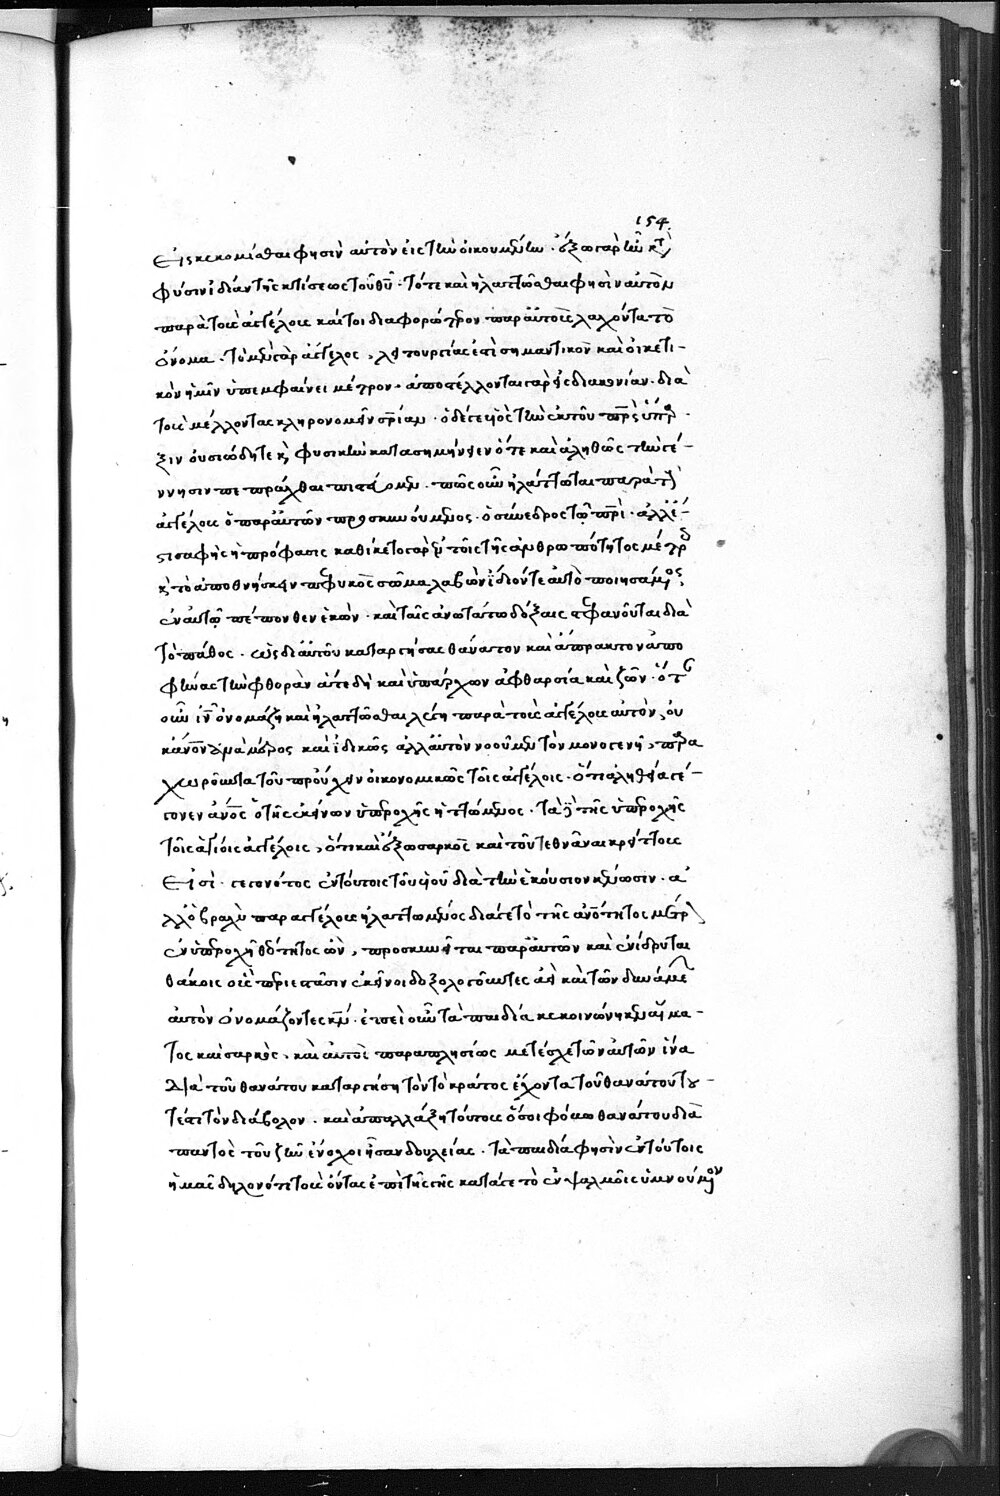 154
Εἰσκεκομίσθαι φησὶν αὐτὸν εἰς τὴν οἰκουμένην · ἔξω γὰρ ἦν κτ
φύσιν ἰδίαν τῆς κτίσεως τοῦ θυ · τότε καὶ ἠλαττῶσθαι φησὶν αὐτὸν
παρὰ τοὺς ἀγγέλους καίτοι διαφορώτερον παρ' αὐτοὺς λαχόντα τὸ
ὄνομα · τὸ μὲν γὰρ ἄγγελος, λειτουργίας ἐστὶ σημαντικὸν καὶ οἰκετι-
κὸν ἡμῖν ὑπεμφαίνει μέτρον · ἀποστέλλονται γὰρ εἰς διακονίαν · διὰ
τοὺς μέλλοντας κληρονομεῖν σρίαν · ὁ δέ γε υἱὸς τὴν ἐκ τοῦ πρς ὕπαρ-
ξιν οὐσιώδη τε κ φυσικὴν κατασημήνειεν ὅτε καὶ ἀληθῶς τὴν γέ-
ννησιν πεπρᾶχθαι πιστεύομεν · πῶς οὖν ἠλάττωται παρὰ τ
ἀγγέλους ὁ παρ' αὐτῶν προσκυνούμενος · ὁ σύνεδρος τῷ πρι · ἀλλ' ἔ-
στι σαφὴς ἡ πρόφασις καθίκετο γὰρ ἐν τοῖς τῆς ἀνθρωπότητος μέτρ
κ τὸ ἀποθνήσκειν πεφυκὸς σῶμα λαβὼν ἴδιόν τε αὐτὸ ποιησάμενος
ἐν αὐτῷ πέπονθεν ἑκών · καὶ ταῖς ἀνωτάτω δόξαις στεφανοῦται διὰ
τὸ πάθος · ὡς δι' αὐτοῦ καταργήσας θάνατον καὶ ἄπρακτον ἀπο
φήνας τὴν φθορὰν ἅτε δὴ καὶ ὑπάρχων ἀφθαρσία καὶ ζωή · ὅτε
οὖν ἰν ὀνομάζῃ καὶ ἠλαττῶσθαι λέγῃ παρὰ τοὺς ἀγγέλους αὐτὸν, οὐ
κ ἀνον ἀνὰ μέρος καὶ ἰδικῶς ἀλλ' αὐτὸν νοοῦμεν τὸν μονογενῆ, παρα
χωροῦντα τοῦ προὔχειν οἰκονομικῶς τοῖς ἀγγέλοις · ὅτι ἀληθείᾳ γέ-
γονεν ανος ὁ τῆς ἐκείνων ὑπεροχῆς ἡττώμενος · τὰ τῆς ὑπεροχῆς
τοῖς ἁγίοις ἀγγέλοις, ὅτι καὶ ἔξω σαρκὸς καὶ τοῦ τεθνᾶναι κρείττους
Εἰσὶ · γεγονότος ἐν τούτοις τοῦ υἱοῦ διὰ τὴν ἑκούσιον κένωσιν · ἀ
λλ' ὁ βραχὺ παρ' ἀγγέλους ἠλαττωμένος διά γε τὸ τῆς ανοτητος μέτρ
ἐν ὑπεροχῇ θεότητος ὢν, προσκυνεῖται παρ' αὐτῶν καὶ ἐνίδρυται
θάκοις οἷς περιεστᾶσιν ἐκεῖνοι δοξολογοῦντες ἀεὶ καὶ τῶν δυνάμε
αὐτὸν ὀνομάζοντες κν · ἐπεὶ οὖν τὰ παιδία κεκοινώνηκεν αἵμα-
τος καὶ σαρκὸς, καὶ αὐτὸς παραπλησίως μετέσχε τῶν αὐτῶν ἵνα
διὰ τοῦ θανάτου καταργήσῃ τὸν τὸ κράτος ἔχοντα τοῦ θανάτου του-
τέστι τὸν διάβολον · καὶ ἀπαλλάξῃ τούτους ὅσοι φόβῳ θανάτου διὰ
παντὸς τοῦ ζῆν ἔνοχοι ἦσαν δουλείας · τὰ παιδία φησὶν ἐν τούτοις
ἡμᾶς δηλονότι τοὺς ὄντας ἐπὶ τῆς γῆς κατά γε τὸ ἐν ψαλμοῖς ὑμνούμενον